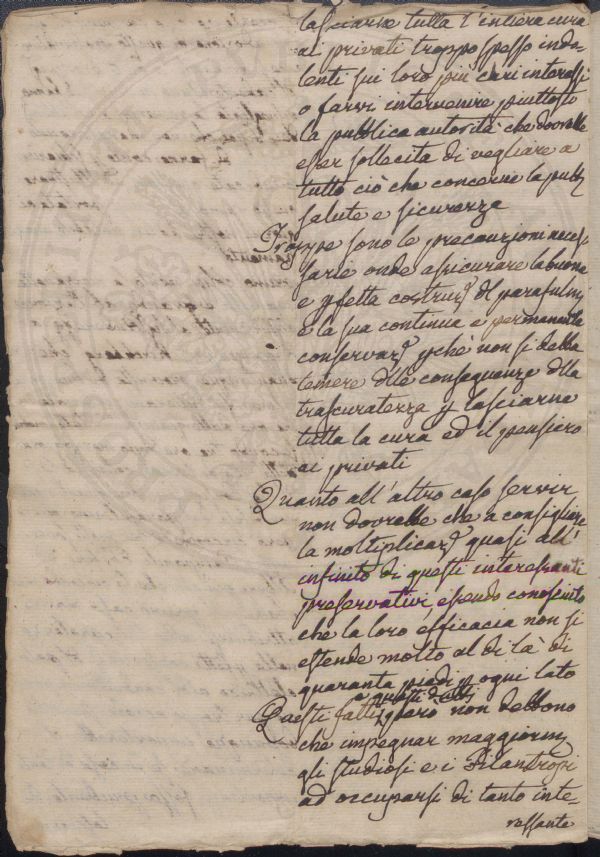 lasciarne tutta l'intiera cura
ai privati troppo spesso indo-
lenti sui loro più cari interessi
o farvi intervenire piuttosto
la pubblica autorità che dovrebbe
esser sollecita di vegliare a
tutto ciò che concerne la pub
salute e sicurezza
Troppe sono le precauzioni neces
sarie onde assicurare la buona
e pfetta costruz. del parafulm
e la sua continua e permanente
conservaz. pchè non si debba
temere dlle conseguenze dlla
trascuratezza p lasciarne
tutta la cura ed il pensiero
ai privati
Quanto all'altro caso servir
non dovrebbe che a consigliare
la moltiplicaz. quasi all'
infinito di questi interessanti
preservativi, essendo conosciuto
che la loro efficacia non si
estende molto al di là di
quaranta piedi p ogni lato
Questi fatti però non debbono
che impegnar maggiorm
gli studiosi e i Filantropi
ad occuparsi di tanto inte-
ressante